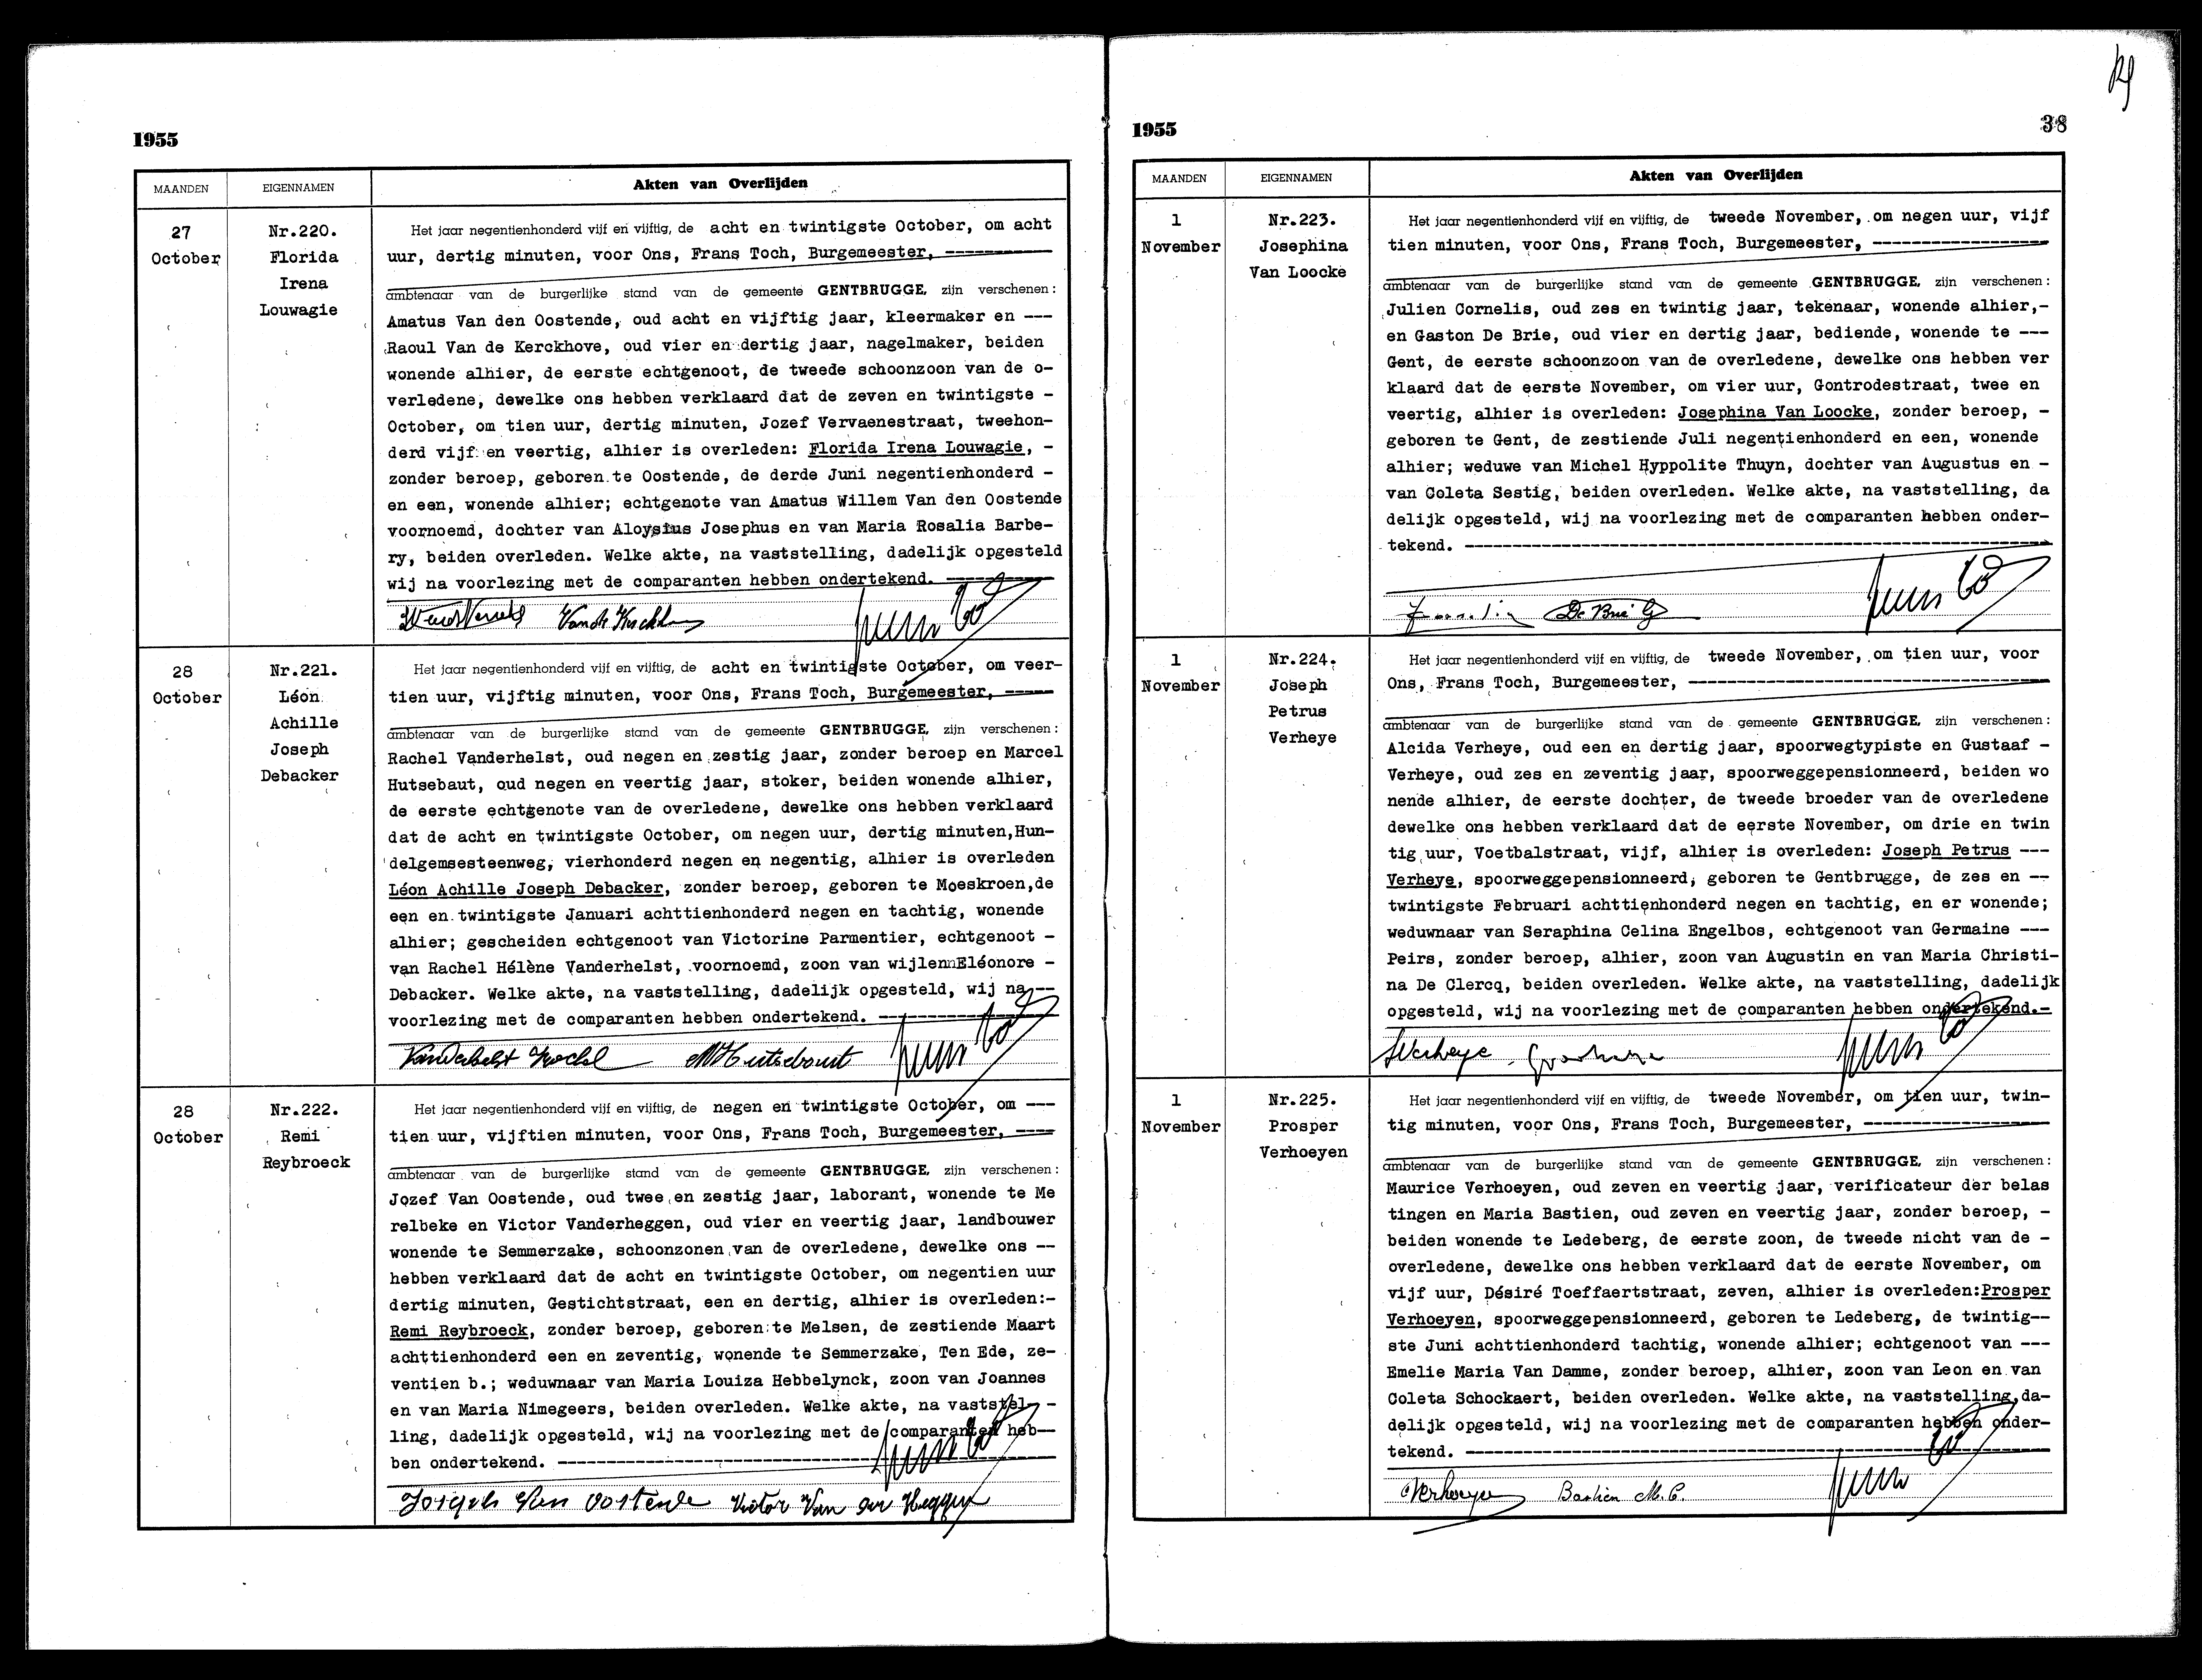 1955
MAANDEN EIGENNAMEN Akten van Overlijden
27
October
Nr.220.
Florida
Irena
Louwagie
Het jaar negentienhonderd vijf en vijftig, de acht en twintigste October, om acht
uur, dertig minuten, voor Ons, Frans Toch, Burgemeester, ----------
ambtenaar van de burgerlijke stand van de gemeente GENTBRUGGE, zijn verschenen:
Amatus Van den Oostende, oud acht en vijftig jaar, kleermaker en ---
Raoul Van de Kerckhove, oud vier en dertig jaar, nagelmaker, beiden
wonende alhier, de eerste echtgenoot, de tweede schoonzoon van de o-
verledene, dewelke ons hebben verklaard dat de zeven en twintigste -
October, om tien uur, dertig minuten, Jozef Vervaenestraat, tweehon-
derd vijf en veertig, alhier is overleden: Florida Irena Louwagie, -
zonder beroep, geboren te Oostende, de derde Juni negentienhonderd -
en een, wonende alhier; echtgenote van Amatus Willem Van den Oostende
voornoemd, dochter van Aloysius Josephus en van Maria Rosalia Barbe-
ry, beiden overleden. Welke akte, na vaststelling, dadelijk opgesteld
wij na voorlezing met de comparanten hebben ondertekend. ----------
28
October
Nr.221.
Léon
Achille
Joseph
Debacker
Het jaar negentienhonderd vijf en vijftig, de acht en twintigste October, om veer-
tien uur, vijftig minuten, voor Ons, Frans Toch, Burgemeester, -----
ambtenaar van de burgerlijke stand van de gemeente GENTBRUGGE, zijn verschenen:
Rachel Vanderhelst, oud negen en zestig jaar, zonder beroep en Marcel
Hutsebaut, oud negen en veertig jaar, stoker, beiden wonende alhier,
de eerste echtgenote van de overledene, dewelke ons hebben verklaard
dat de acht en twintigste October, om negen uur, dertig minuten,Hun-
delgemsesteenweg, vierhonderd negen en negentig, alhier is overleden
Léon Achille Joseph Debacker, zonder beroep, geboren te Moeskroen,de
een en twintigste Januari achttienhonderd negen en tachtig, wonende
alhier; gescheiden echtgenoot van Victorine Parmentier, echtgenoot -
van Rachel Hélène Vanderhelst, voornoemd, zoon van wijlennEléonore -
Debacker. Welke akte, na vaststelling, dadelijk opgesteld, wij na---
voorlezing met de comparanten hebben ondertekend. -----------------
Vanderhelst Rachel M Hutsebaut
28
October
Nr.222.
Remi
Reybroeck
Het jaar negentienhonderd vijf en vijftig, de negen en twintigste October, om ---
tien uur, vijftien minuten, voor Ons, Frans Toch, Burgemeester, ----
ambtenaar van de burgerlijke stand van de gemeente GENTBRUGGE, zijn verschenen:
Jozef Van Oostende, oud twee en zestig jaar, laborant, wonende te Me
relbeke en Victor Vanderheggen, oud vier en veertig jaar, landbouwer
wonende te Semmerzake, schoonzonen van de overledene, dewelke ons --
hebben verklaard dat de acht en twintigste October, om negentien uur
dertig minuten, Gestichtstraat, een en dertig, alhier is overleden:-
Remi Reybroeck, zonder beroep, geboren te Melsen, de zestiende Maart
achttienhonderd een en zeventig, wonende te Semmerzake, Ten Ede, ze-
ventien b.; weduwnaar van Maria Louiza Hebbelynck, zoon van Joannes
en van Maria Nimegeers, beiden overleden. Welke akte, na vaststel- -
ling, dadelijk opgesteld, wij na voorlezing met de comparanten heb--
ben ondertekend. --------------------------------------------------
Joseph Van Oostende Victor Van der Heggen
1955
38
MAANDEN EIGENNAMEN Akten van Overlijden
1
November
Nr.223.
Josephina
Van Loocke
Het jaar negentienhonderd vijf en vijftig, de tweede November, om negen uur, vijf
tien minuten, voor Ons, Frans Toch, Burgemeester, -----------------
ambtenaar van de burgerlijke stand van de gemeente GENTBRUGGE, zijn verschenen:
Julien Cornelis, oud zes en twintig jaar, tekenaar, wonende alhier,-
en Gaston De Brie, oud vier en dertig jaar, bediende, wonende te ---
Gent, de eerste schoonzoon van de overledene, dewelke ons hebben ver
klaard dat de eerste November, om vier uur, Gontrodestraat, twee en
veertig, alhier is overleden: Josephina Van Loocke, zonder beroep, -
geboren te Gent, de zestiende Juli negentienhonderd en een, wonende
alhier; weduwe van Michel Hyppolite Thuyn, dochter van Augustus en -
van Coleta Sestig, beiden overleden. Welke akte, na vaststelling, da
delijk opgesteld, wij na voorlezing met de comparanten hebben onder-
tekend. ----------------------------------------------------------
De Brie G
1
November
Nr.224.
Joseph
Petrus
Verheye
Het jaar negentienhonderd vijf en vijftig, de tweede November, om tien uur, voor
Ons, Frans Toch, Burgemeester, ------------------------------------
ambtenaar van de burgerlijke stand van de gemeente GENTBRUGGE, zijn verschenen:
Alcida Verheye, oud een en dertig jaar, spoorwegtypiste en Gustaaf -
Verheye, oud zes en zeventig jaar, spoorweggepensionneerd, beiden wo
nende alhier, de eerste dochter, de tweede broeder van de overledene
dewelke ons hebben verklaard dat de eerste November, om drie en twin
tig uur, Voetbalstraat, vijf, alhier is overleden: Joseph Petrus ---
Verheye, spoorweggepensionneerd, geboren te Gentbrugge, de zes en --
twintigste Februari achttienhonderd negen en tachtig, en er wonende;
weduwnaar van Seraphina Celina Engelbos, echtgenoot van Germaine ---
Peirs, zonder beroep, alhier, zoon van Augustin en van Maria Christi-
na De Clercq, beiden overleden. Welke akte, na vaststelling, dadelijk
opgesteld, wij na voorlezing met de comparanten hebben ondertekend.-
AVerheye
1
November
Nr.225.
Prosper
Verhoeyen
Het jaar negentienhonderd vijf en vijftig, de tweede November, om tien uur, twin-
tig minuten, voor Ons, Frans Toch, Burgemeester, ------------------
ambtenaar van de burgerlijke stand van de gemeente GENTBRUGGE, zijn verschenen:
Maurice Verhoeyen, oud zeven en veertig jaar, verificateur der belas
tingen en Maria Bastien, oud zeven en veertig jaar, zonder beroep, -
beiden wonende te Ledeberg, de eerste zoon, de tweede nicht van de -
overledene, dewelke ons hebben verklaard dat de eerste November, om
vijf uur, Désiré Toeffaertstraat, zeven, alhier is overleden:Prosper
Verhoeyen, spoorweggepensionneerd, geboren te Ledeberg, de twintig--
ste Juni achttienhonderd tachtig, wonende alhier; echtgenoot van ---
Emelie Maria Van Damme, zonder beroep, alhier, zoon van Leon en van
Coleta Schockaert, beiden overleden. Welke akte, na vaststelling,da-
delijk opgesteld, wij na voorlezing met de comparanten hebben onder-
tekend. ----------------------------------------------------------
Verhoeyen Bastien M.C.